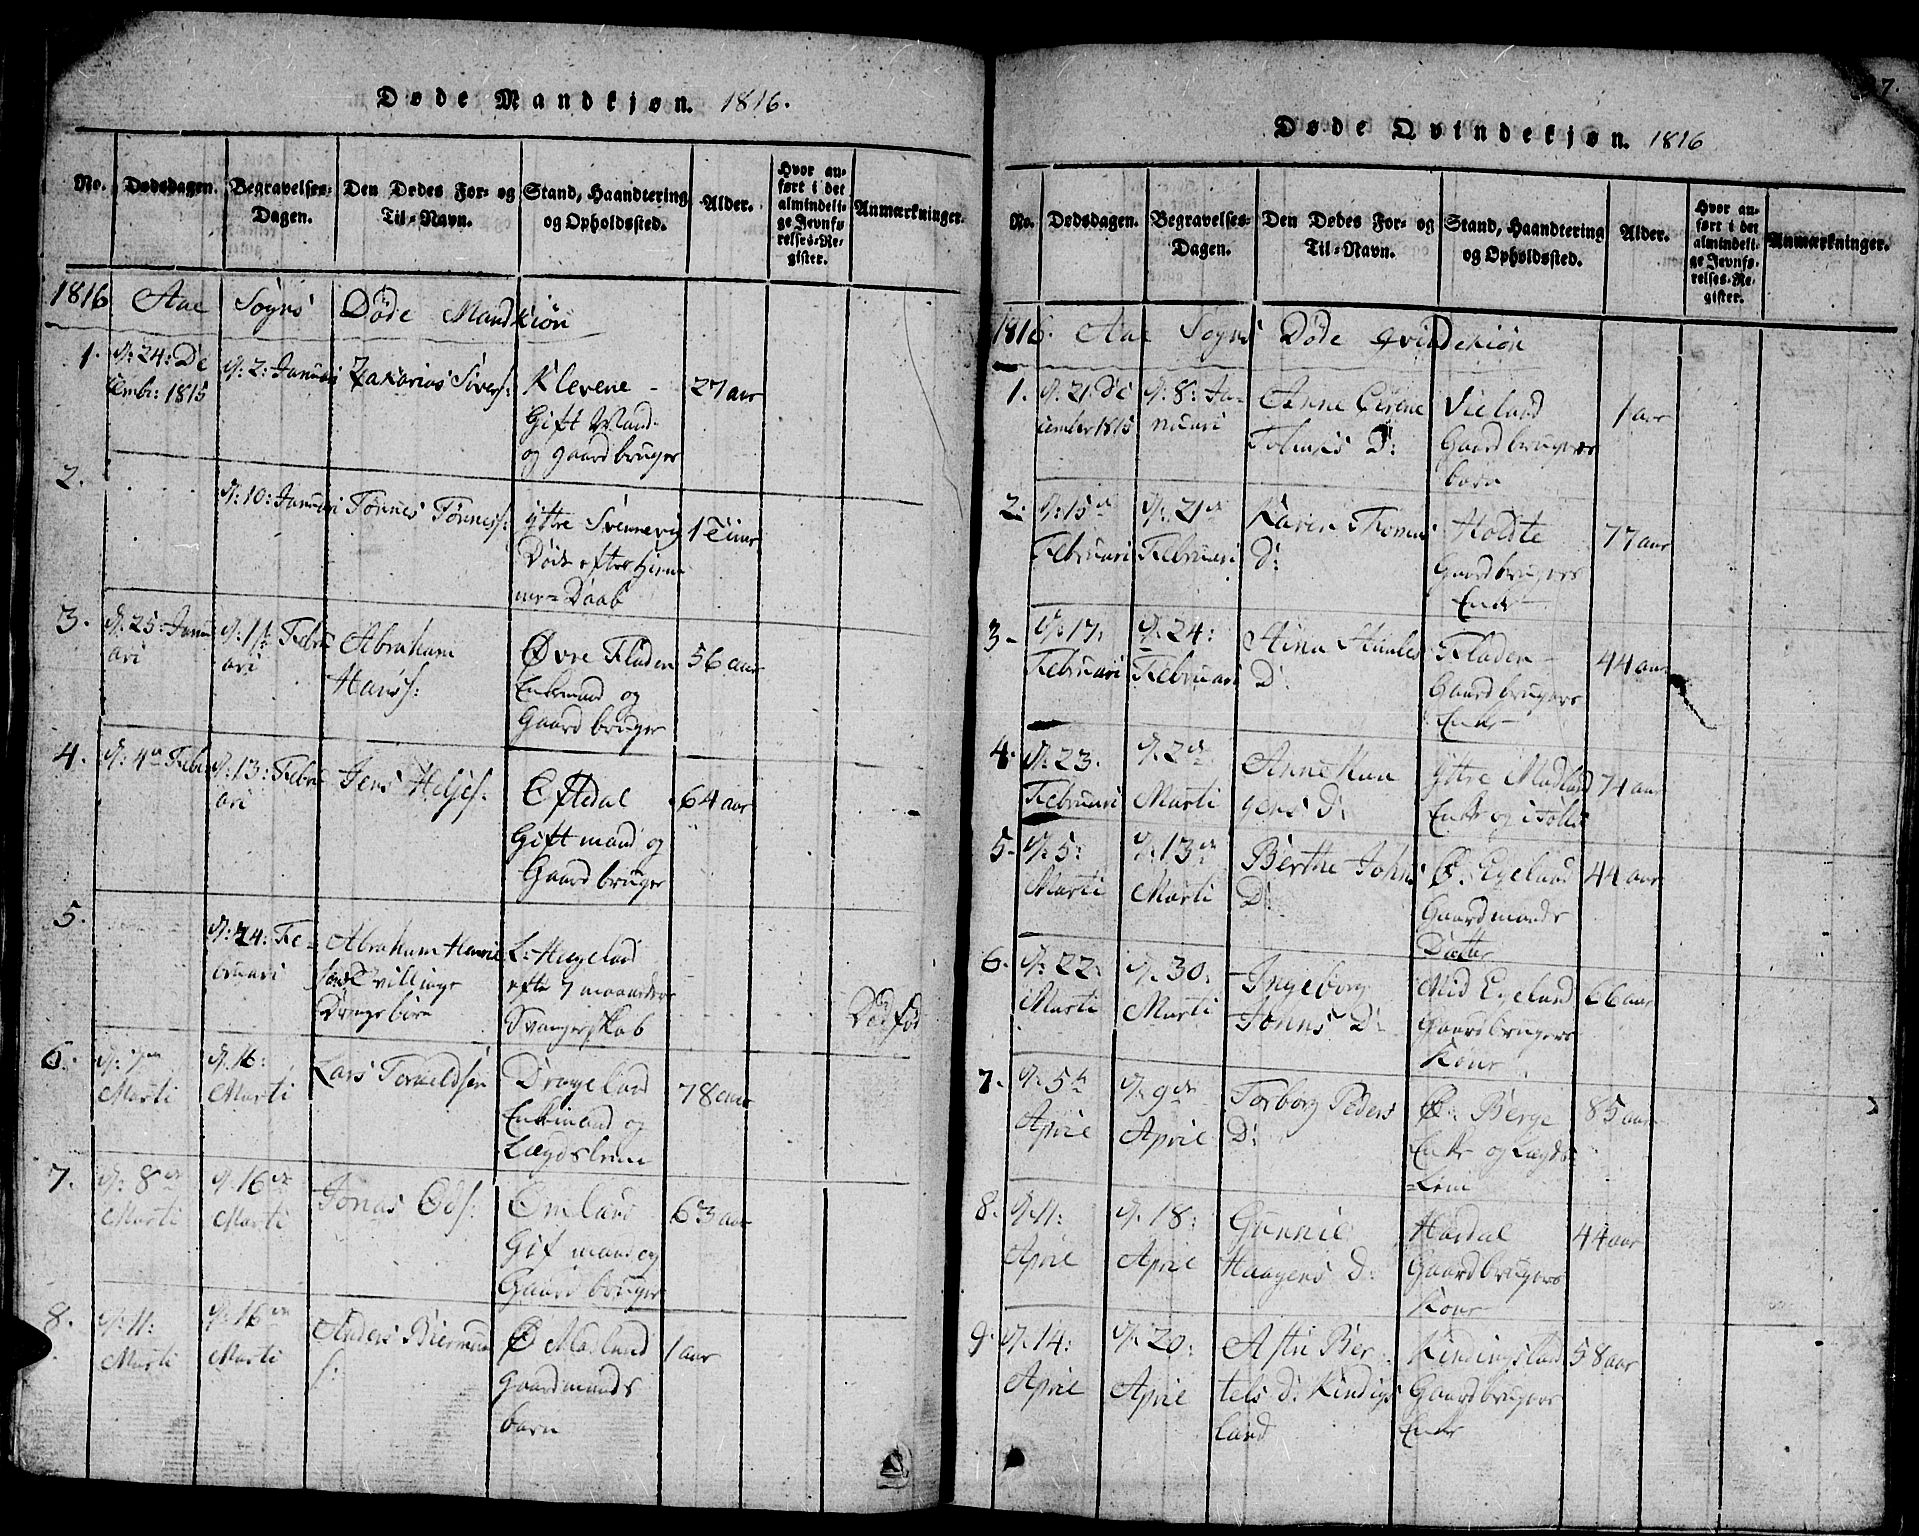 Døde Mandkjøn. 1816.
No. Dødsdagen. Begravelses-Dagen. Den Dødes For- og Til-Navn. Stand, Haandtering og Opholdssted. Alder. Hvor anført i det almindelige Jevnførelses-Register. Anmærkninger.
1816 Aae Sogns Døde Mandkiön
1. d: 24: De
cembr: 1815
d: 2: Januari
Zakarias Sivers:
Klevene
Gift Mand
og gaardbruger
27 aar
2.
d: 10: Januari
Tønnes Tønness:
ÿttre Svennevig
Döde efter Hiem
me=Daab
1 Time
3. d: 25: Janu
ari
d: 1te Febru
ari
Abraham
Hanss:
Øvre Fladen
Enkmand og
Gaardbruger
56 aar
4. d: 4de Febr
d: 13: Febru
ari
Jens Heljes:
Eftedal
Giftmand og
Gaardbruger
64 aar
5.
d: 24: Fe=
bruari
Abraham
Tvillinge
Drengebörn
L: Hægeland
efte 7 maaneders
Svangerskab
Död född
6. d: 7de
Marti
d: 16:
Marti
Lars Torkieldsen
Drageland
Enkemand og
Lægdslem
78 aar
7. d: 8de
Marti
d: 16de
Marti
Jonas Ods:
Omland
Gift mand og
Gaardbruger
63 aar
8. d: 11:
Marti
d: 16de
Marti
Anders
s:
Ø Madland
gaardmands
barn
1 aar
7.
Døde Qvindekjøn. 1816
No. Dødsdagen. Begravelses-Dagen. Den Dødes For- og Til-Navn. Stand, Haandtering og Opholdssted. Alder. Hvor anført i det almindelige Jevnførelses-Register. Anmærkninger.
1816. Aae Sogns Döde Qvindekiön
1. d: 21 De
cember 1815
d: 8: Ja-
nuari
Anne
D:
Vieland
Gaardbrugers
barn
1 aar
2. d: 15de
Februari
d: 21de
Februari
Karen Thomas
D:
Holdte
Gaardbrugers
Enke
77 aar
3- d: 17:
Februari
d: 24:
Februari
D:
Fladen
Gaardbrugers
Enke
44 aar
4. d: 23.
Februari
d: 2de
Marti
Anne Haa
gens D:
ÿttre Madland
Enke og
71 aar
5- d: 5:
Marti
d: 13de
Marti
Berthe Johns
D:
Ø. Egeland
Gaardmands
Datter
44 aar
6. d: 22:
Marti
d: 30:
Marti
Ingeborg
Jonns D:
Mid Egeland
Gaardbrugers
Kone
66 aar
7. d: 5te
April
d: 9de
April
Torborg Peders
D:
Ø: Berge
Enke og Lægds
=Lem
85 aar
8. d. 11:
April
d. 18:
April
Gunnil
Haagens D:
Hardal
Gaardbrugers
Kone
44 aar
9. d. 14:
April
d. 20:
April
Astri Ber
tels D: Kindigs
land
Kindingsland
Gaardbrugers
Enke
58 aar